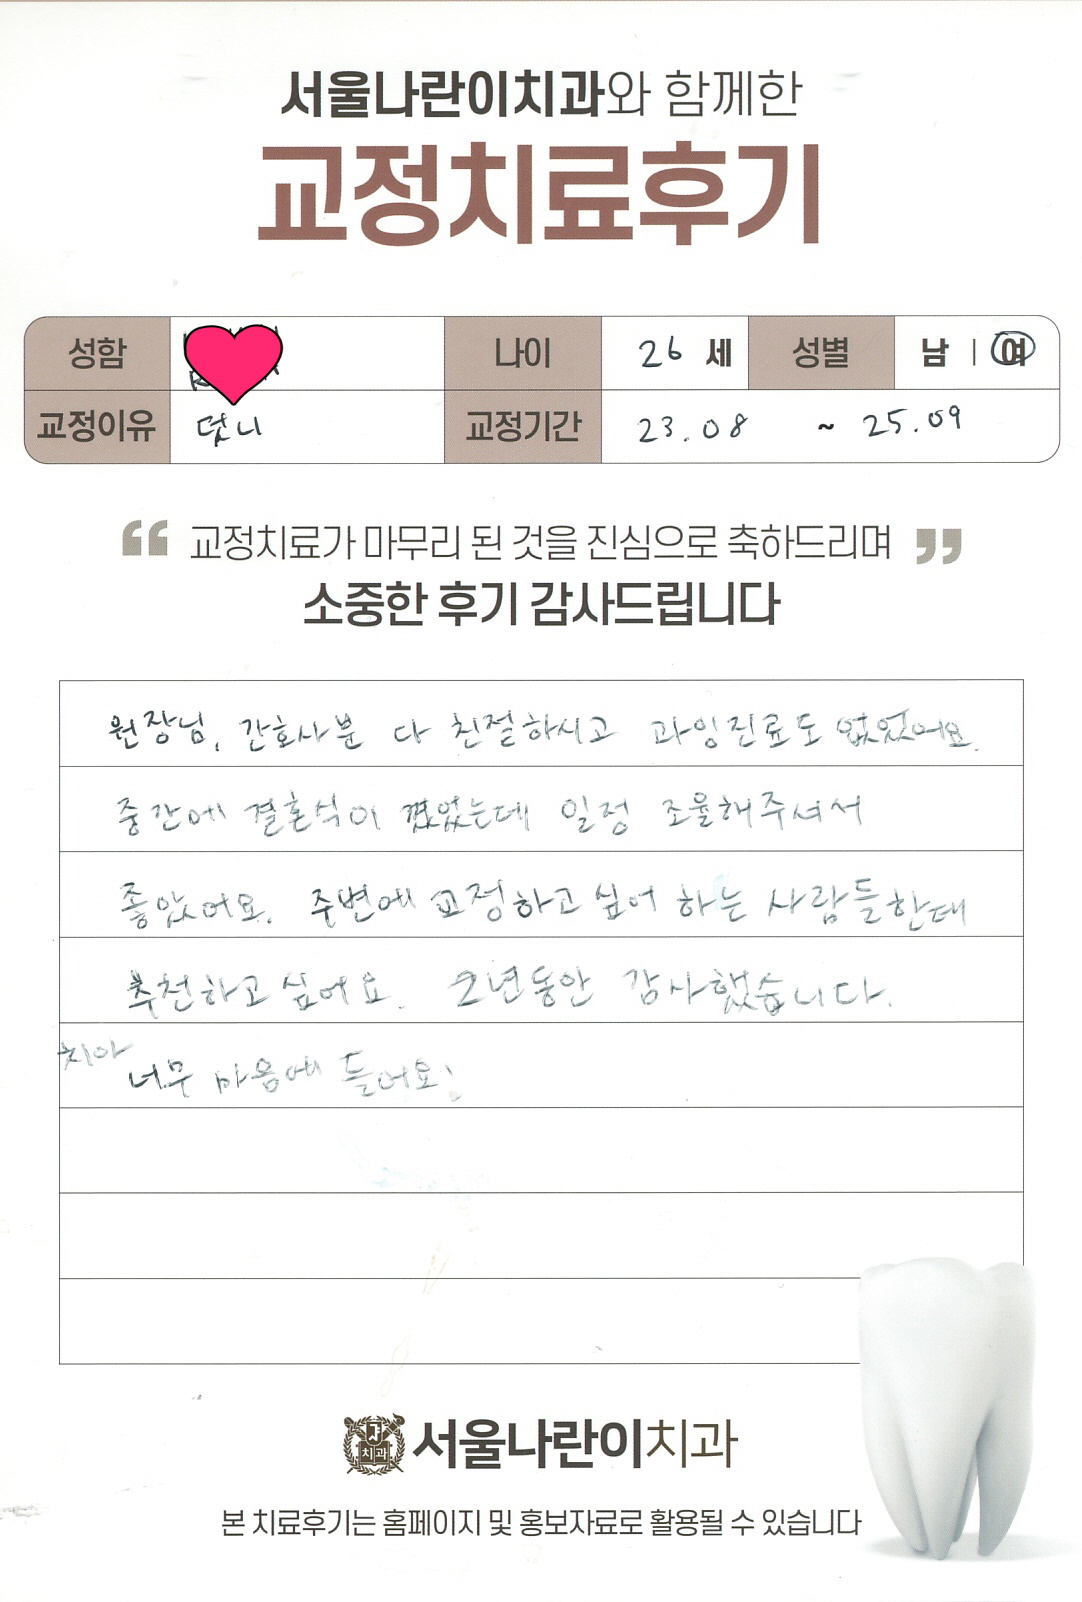 서울나란이치과와 함께한
교정치료후기
성함 나이 26 세 성별 남 | 여
교정이유 덧니 교정기간 23.08 ~ 25.09
“ 교정치료가 마무리 된 것을 진심으로 축하드리며 ”
소중한 후기 감사드립니다
원장님, 간호사분 다 친절하시고 과잉진료도 없었어요.
중간에 결혼식이 꼈었는데 일정 조율해주셔서
좋았어요. 주변에 교정하고 싶어 하는 사람들한테
추천하고 싶어요. 2년동안 감사했습니다.
치아 너무 마음에 들어요!
치과
서울나란이치과
본 치료후기는 홈페이지 및 홍보자료로 활용될 수 있습니다